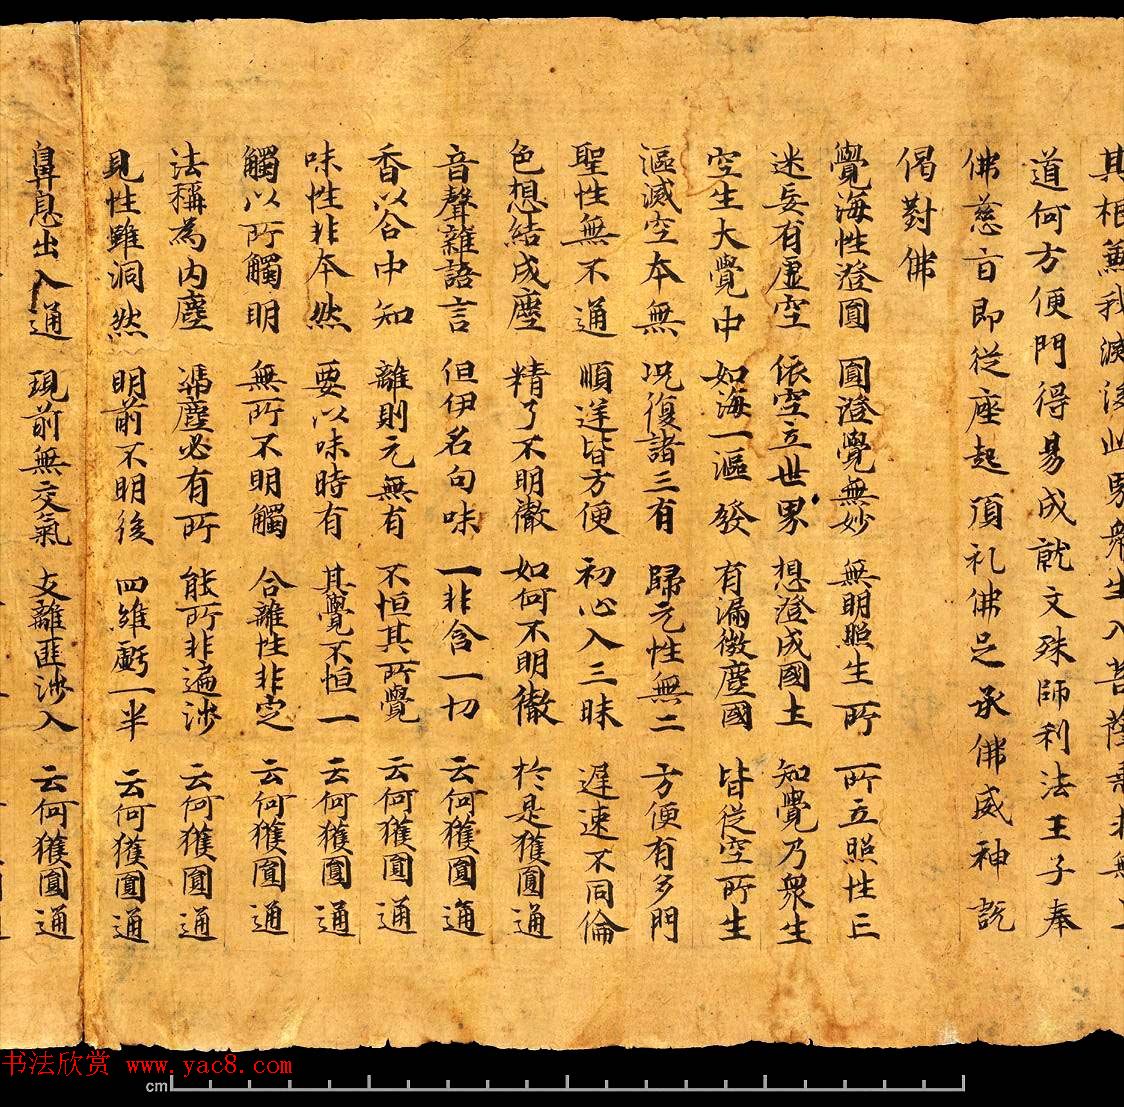 其根兼我滅後此界衆生入菩薩乘求無上
道何方便門得易成就文殊師利法王子奉
佛慈旨即從座起頂礼佛足承佛威神説
偈對佛
覺海性澄圓 圓澄覺無妙 無明照生所 所立照性三
迷妄有虛空 依空立世界 想澄成國土 知覺乃衆生
空生大覺中 如海一漚發 有漏微塵國 皆從空所生
漚滅空本無 况復諸三有 歸元性無二 方便有多門
聖性無不通 順逆皆方便 初心入三昧 遲速不同倫
色想結成塵 精了不明徹 如何不明徹 於是獲圓通
音聲雜語言 但伊名句味 一非含一切 云何獲圓通
香以合中知 離則元無有 不恒其所覺 云何獲圓通
味性非本然 要以味時有 其覺不恒一 云何獲圓通
觸以所觸明 無所不明觸 合離性非定 云何獲圓通
法稱為内塵 馮塵必有所 能所非遍涉 云何獲圓通
見性雖洞然 明前不明後 四維虧一半 云何獲圓通
鼻息出入通 現前無交氣 支離匪涉入 云何獲圓通
书法欣赏 www.yac8.com
cm